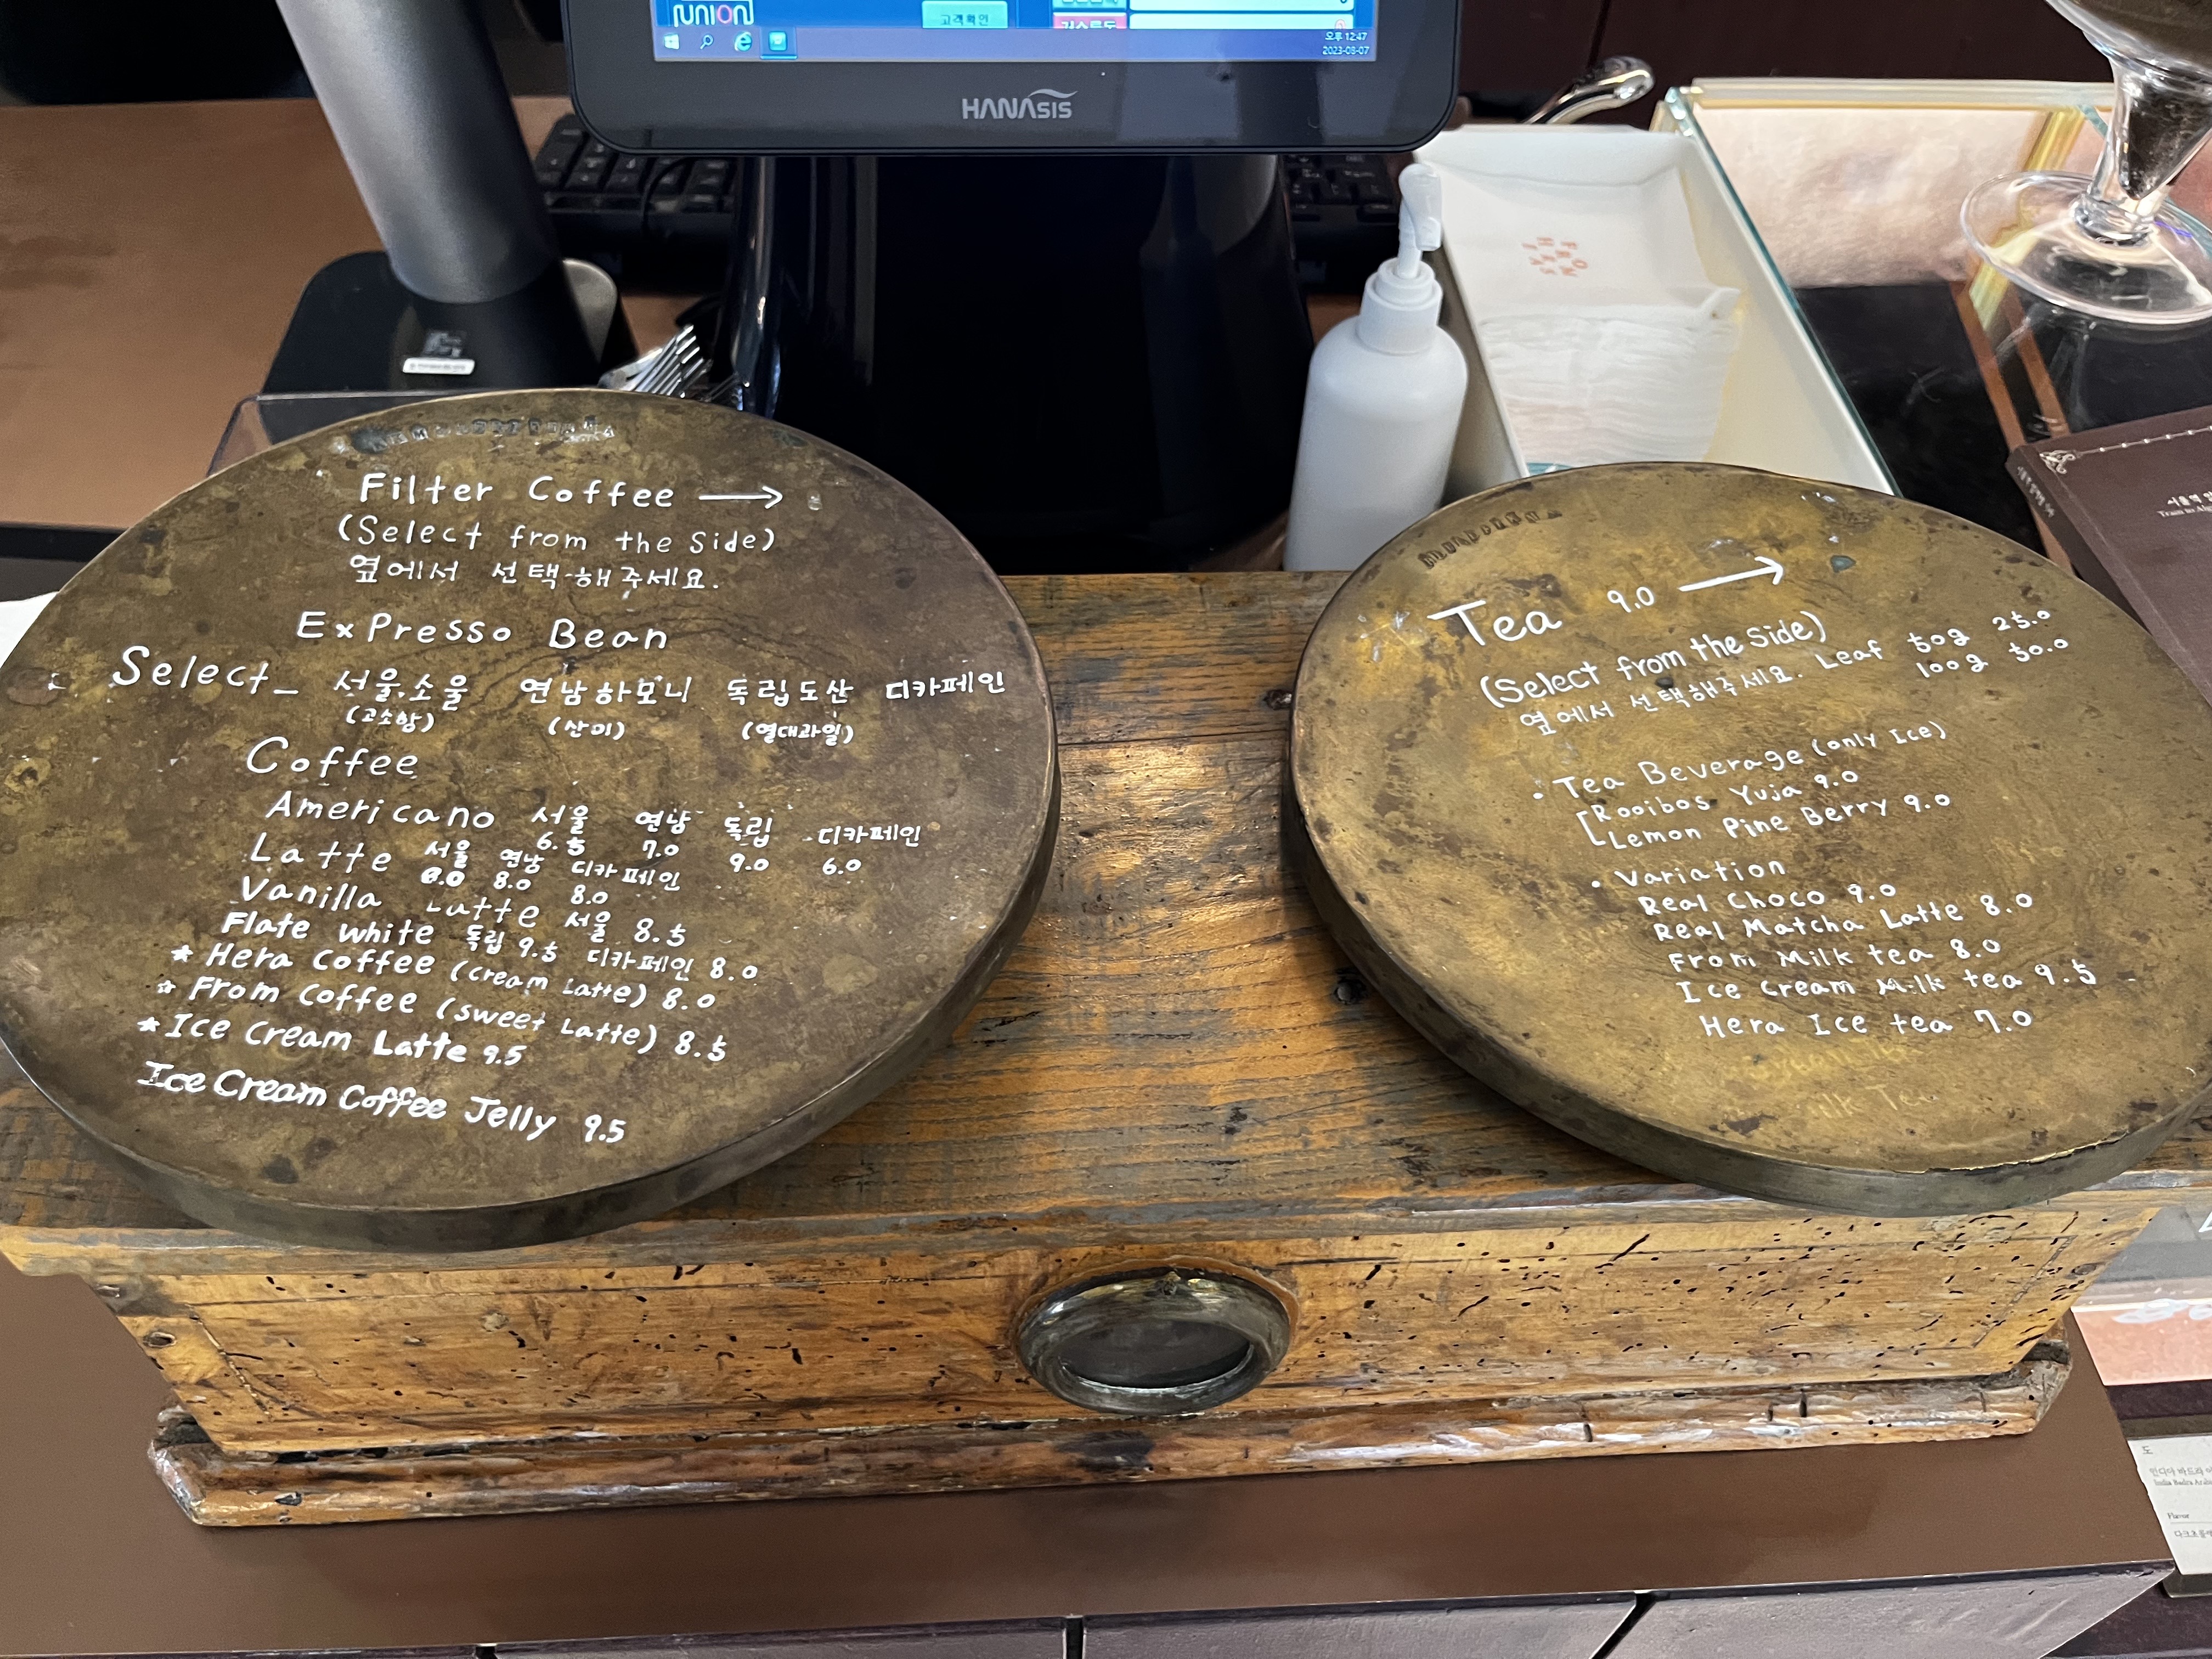 UNION
고객확인
오후 12:47
2023-08-07
HANAsis
Filter Coffee →
(Select from the Side)
옆에서 선택해주세요.
ExPresso Bean
Select_ 서울.소울 연남하모니 독립도산 디카페인
(고소함) (산미) (열대과일)
Coffee
Americano 서울 연남 독립 디카페인
6.5 7.0 9.0 6.0
Latte 서울 연남 디카페인
8.0 8.0
Vanilla Latte 서울 8.5
Flate white 독립 9.5 디카페인 8.0
★ Hera Coffee (cream Latte) 8.0
☆ From Coffee (sweet Latte) 8.5
★ Ice Cream Latte 9.5
Ice Cream Coffee Jelly 9.5
Tea 9.0 →
(Select from the Side)
옆에서 선택해주세요. Leaf 50g 25.0
100g 50.0
• Tea Beverage (only Ice)
[Rooibos Yuja 9.0
Lemon Pine Berry 9.0
• Variation
Real Choco 9.0
Real Matcha Latte 8.0
From Milk tea 8.0
Ice Cream Milk tea 9.5
Hera Ice tea 7.0
Flavor